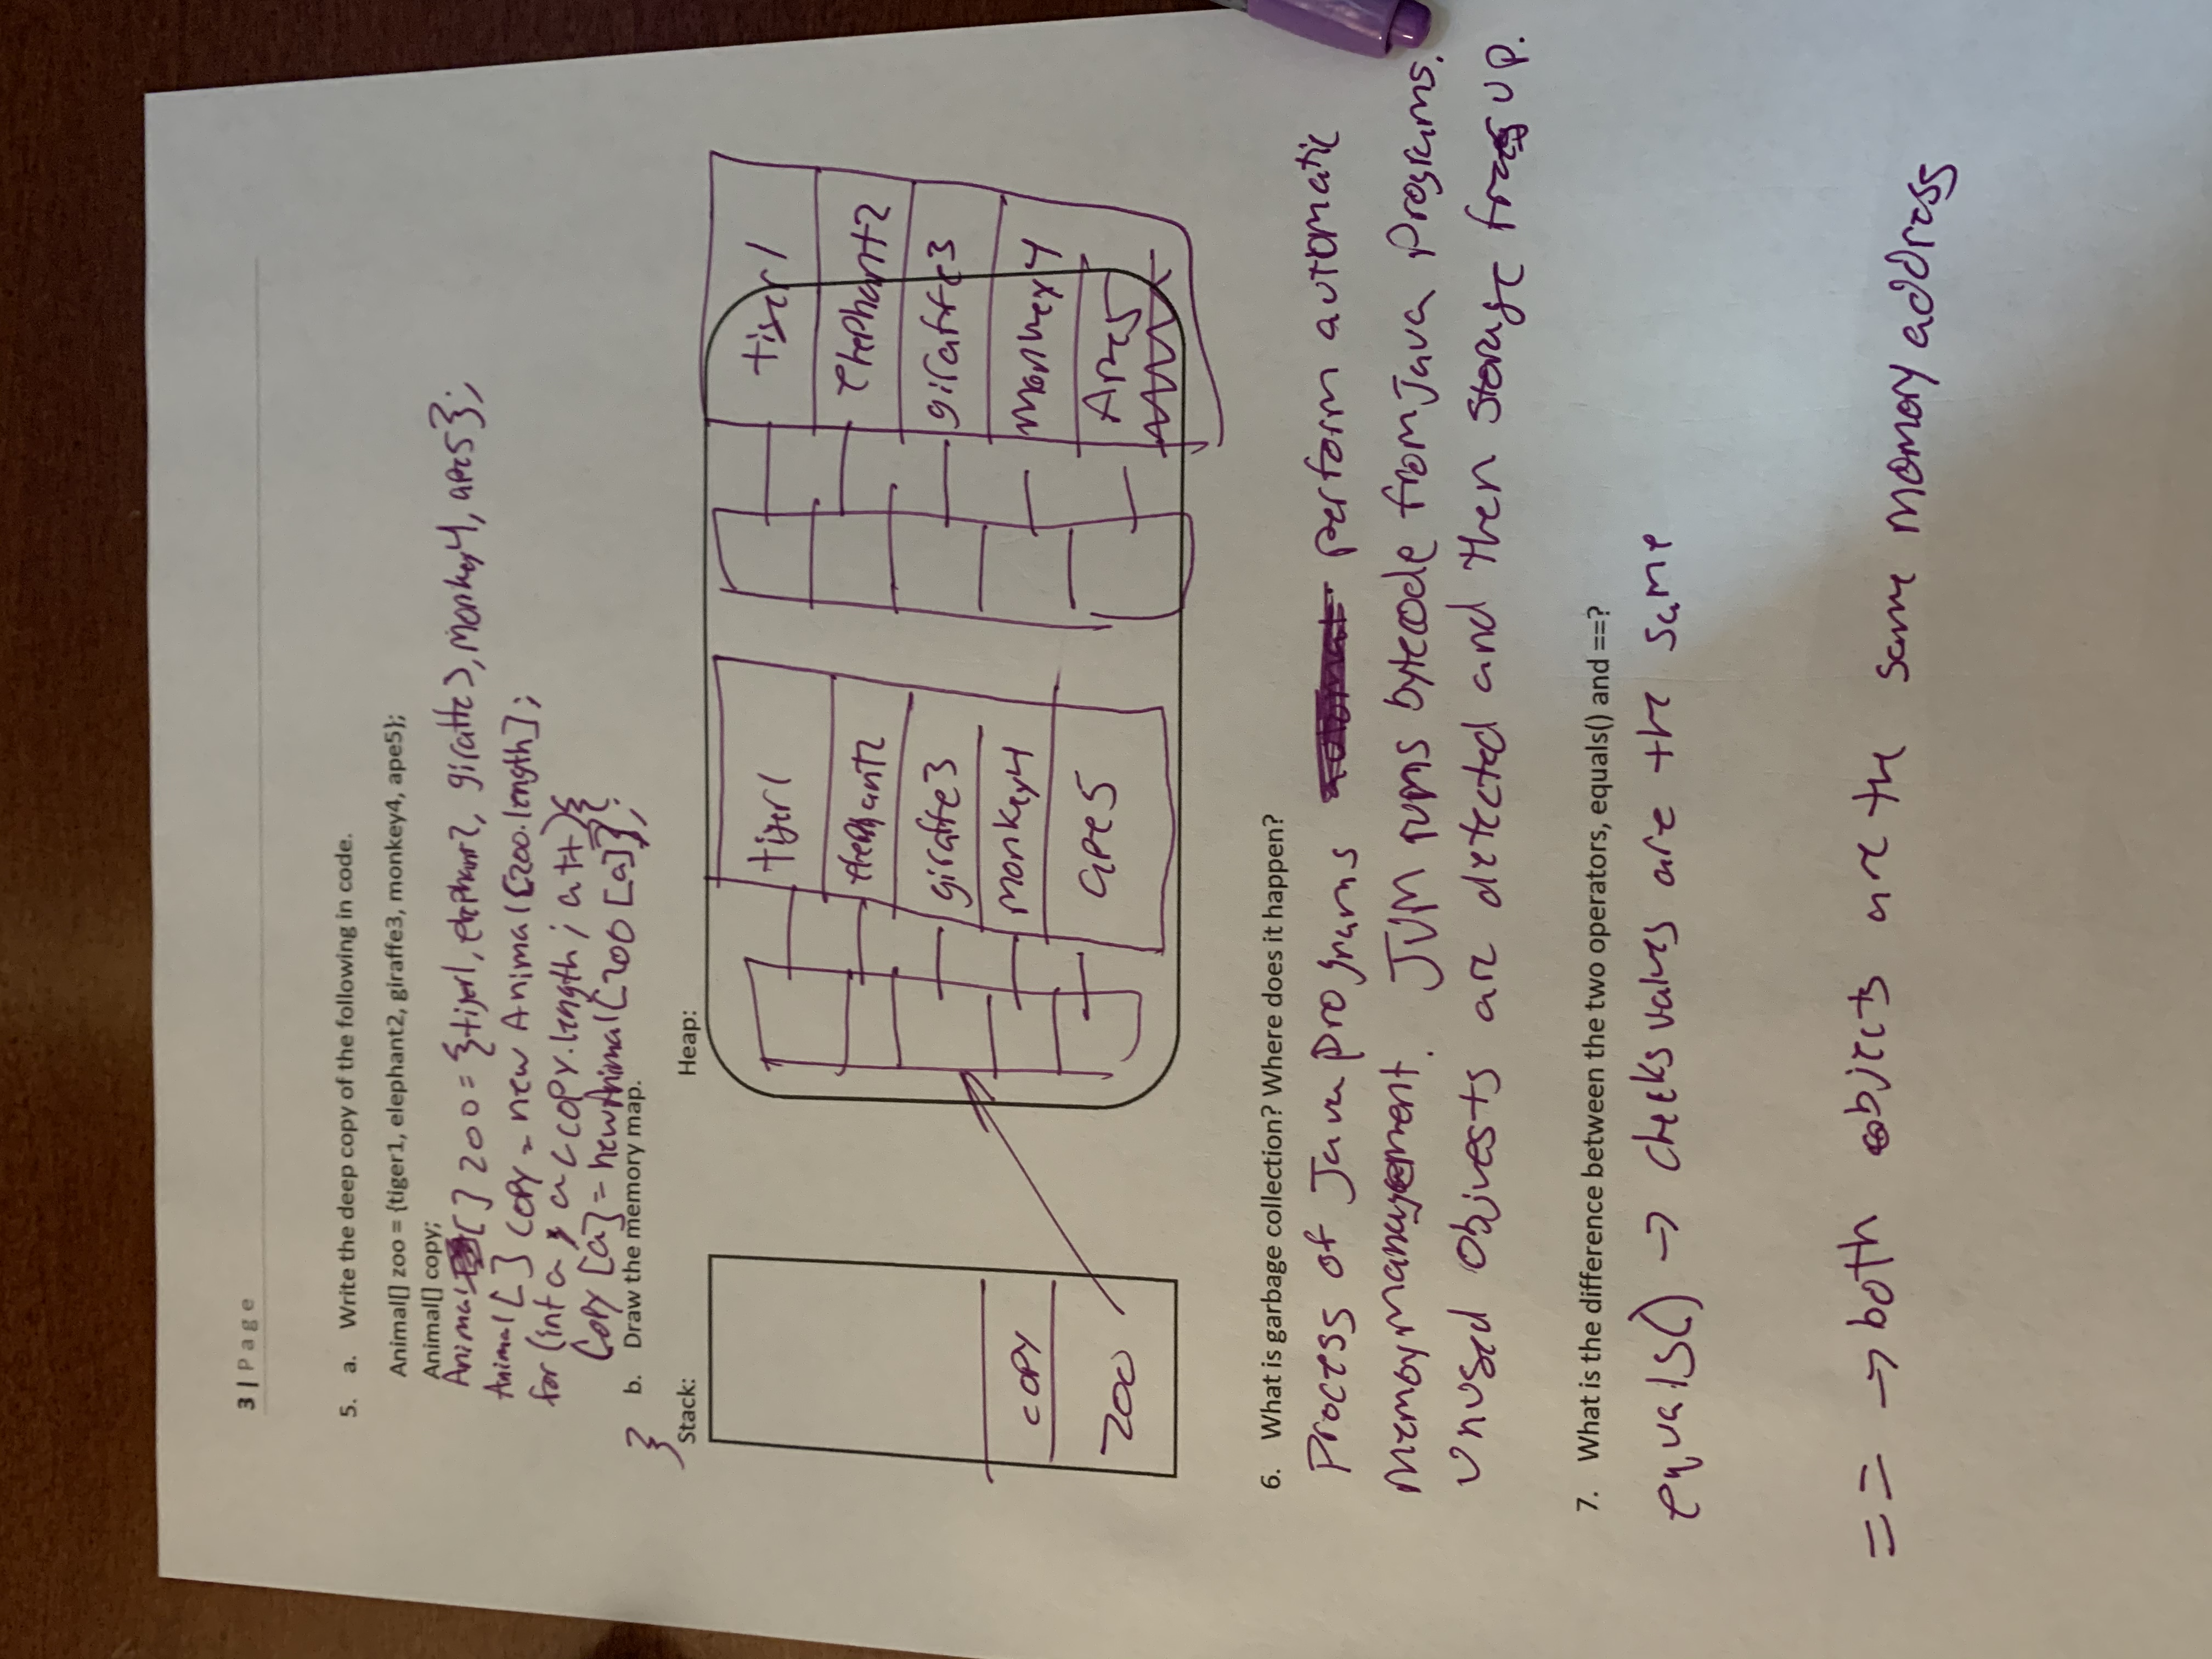 3 | Page
5. a. Write the deep copy of the following in code.
Animal[] zoo = {tiger1, elephant2, giraffe3, monkey4, ape5};
Animal[] copy;
Animal[] zoo = {tiger1, elephant2, giraffe3, monkey4, ape5};
Animal[] copy = new Animal[zoo.length];
for (int a; a < copy.length; a++){
copy[a] = new Animal(zoo[a]);
}
b. Draw the memory map.
Stack:
Heap:
tiger1
elephant2
giraffe3
monkey4
ape5
tiger1
elephant2
giraffe3
monkey4
Ape5
copy
zoo
6. What is garbage collection? Where does it happen?
Process of Java programs perform automatic
memory management. JVM runs bytecode from Java programs.
Unused objects are detected and then storage frees up.
7. What is the difference between the two operators, equals() and ==?
equals() → checks values are the same
== → both objects are the same memory address